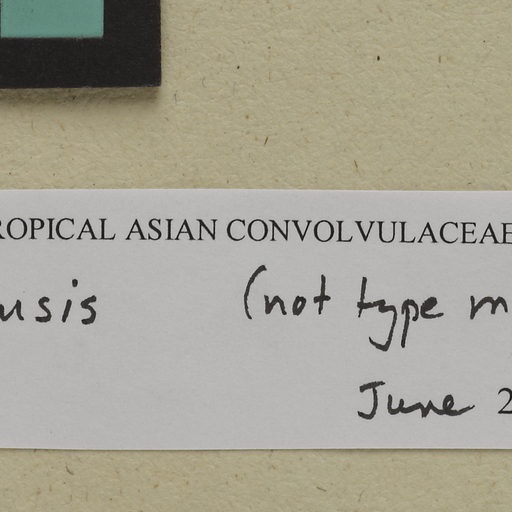 ROPICAL ASIAN CONVOLVULACEAE
usis (not type m
June 2